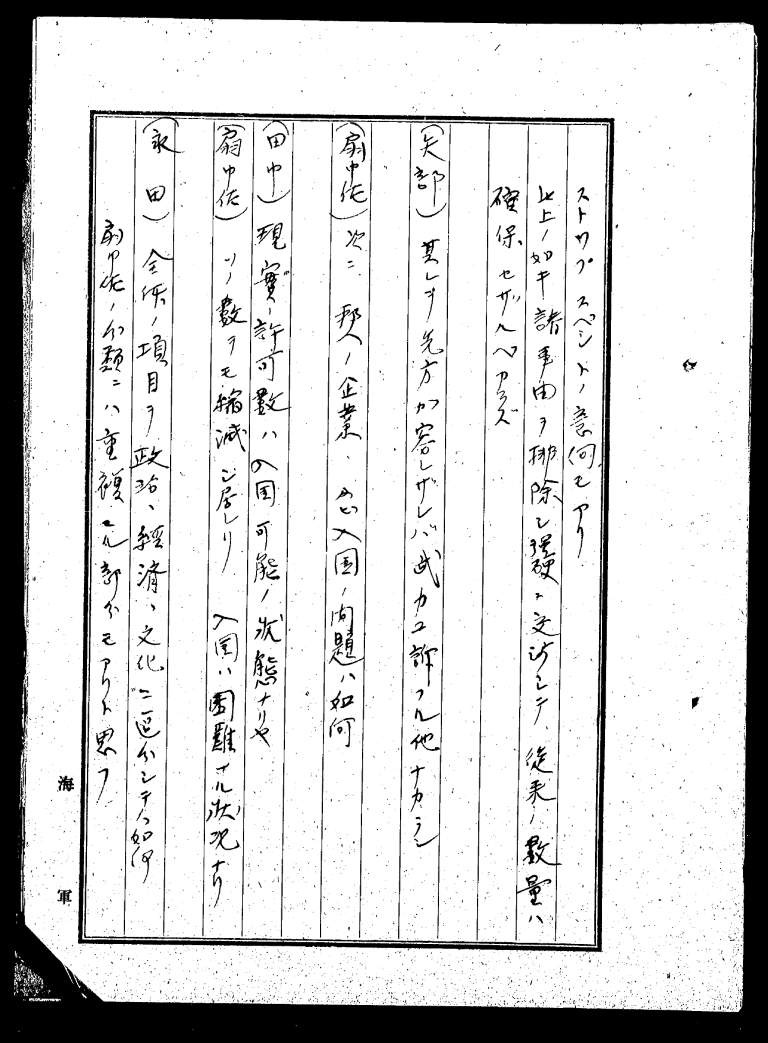 ストツプ スペシトノ意何モアリ
此上ノ如キ諸事由ヲ排除シ強硬ニ交渉シテ、従来ノ数量ハ
確保セザルベカラズ
(矢部) 其レヲ先方ガ容レザレバ武力ニ訴フル他ナカラン
(扇中佐) 次ニ 邦人ノ企業、入国ノ問題ハ如何
(田中) 現實ノ許可數ハ入国可能ノ状態ナリヤ
(扇中佐) ソノ數ヲモ縮減シ居レリ 入国ハ困難ナル状況ナリ
(永田) 全体ノ項目ヲ政治、経済、文化ニ区分シテハ如何
扇中佐ノ分類ニハ重複スル部分モアリト思フ
海軍